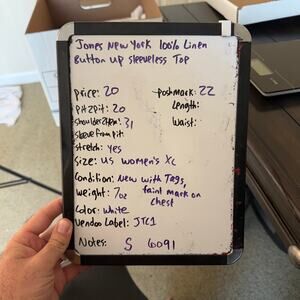 Jones New York 100% Linen
Button Up Sleeveless Top
price: 20
poshmark: 22
pit2pit: 20
Length:
shoulder2hem: 31
Waist:
sleeve from pit:
stretch: yes
size: US women's XL
Condition: New with Tags,
faint mark on
chest
weight: 7oz
Color: white
Vendoo Label: JTC1
Notes: S 6091